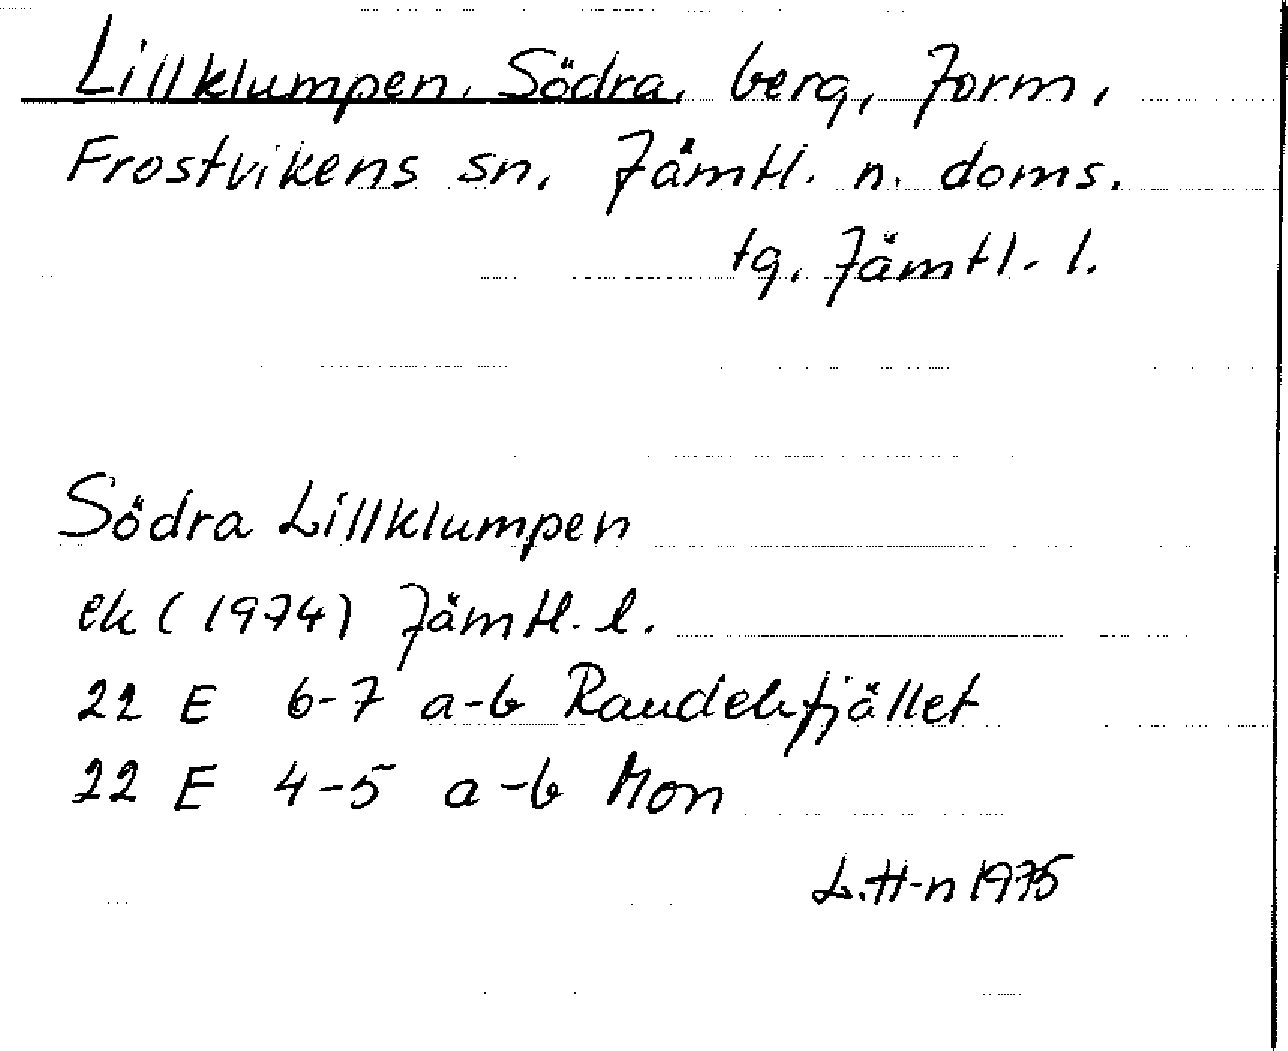 Lillklumpen, Södra, berg, form,
Frostvikens sn, Jämtl. n. doms.
tg. Jämtl. l.
Södra Lillklumpen
ek (1974) Jämtl. l.
22 E 6-7 a-b Raudekfjället
22 E 4-5 a-b Mon
L.H-n 1975